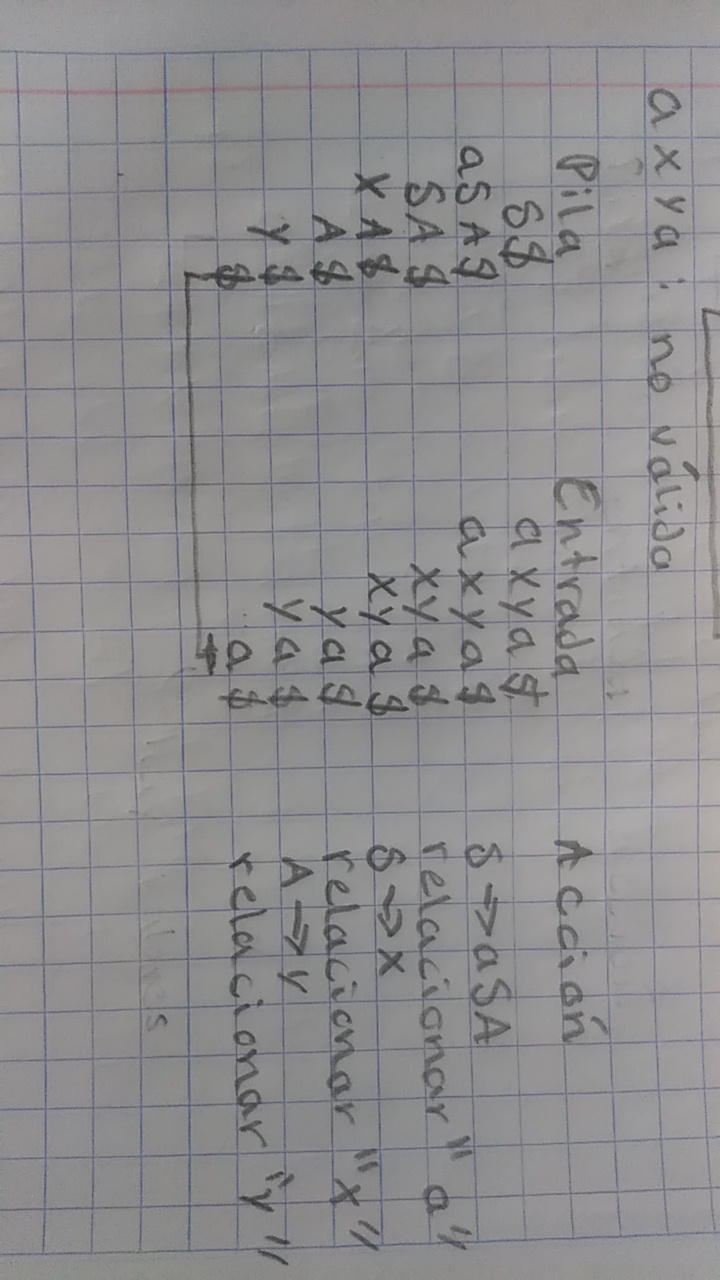 axya: no válida
Pila Entrada Acción
S$ axya$
aSA$ axya$ S→aSA
SA$ xya$ relacionar "a"
xA$ xya$ S→x
A$ ya$ relacionar "x"
y$ ya$ A→y
$ a$ relacionar "y"